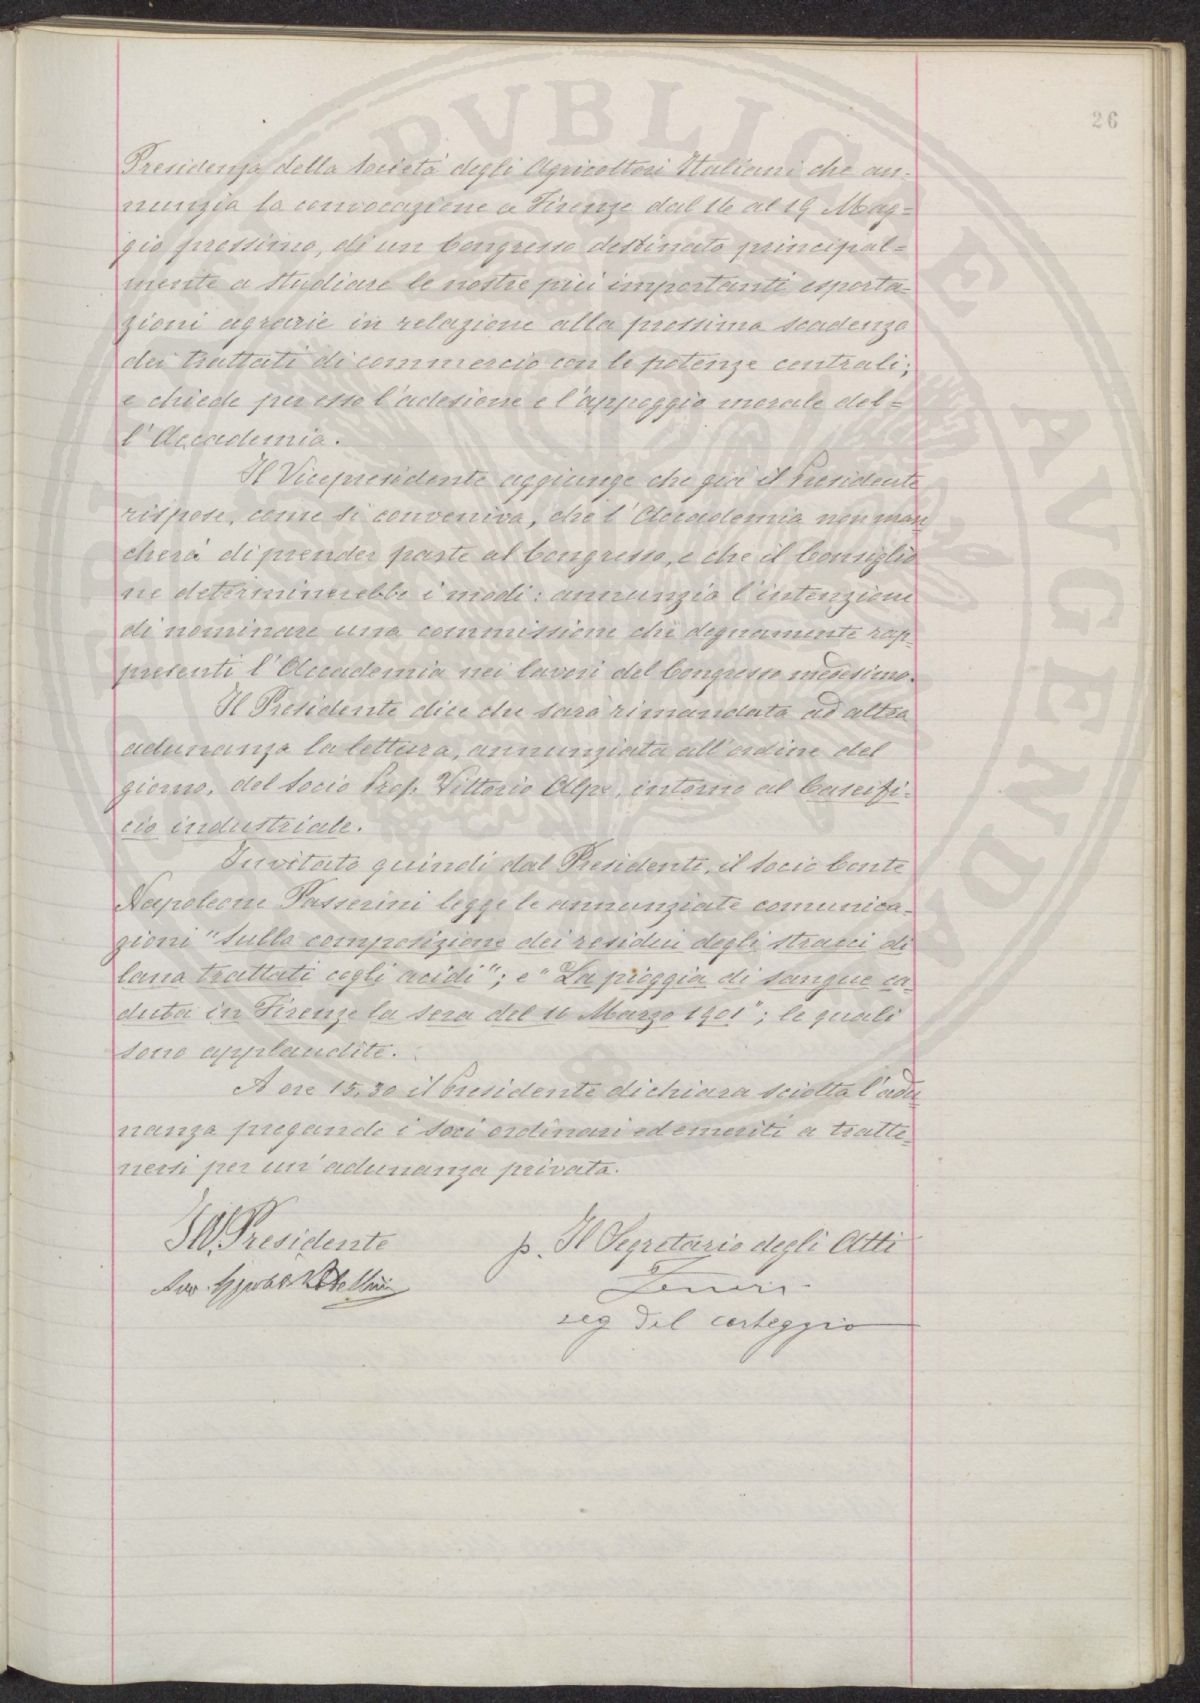 26
Presidenza della Società degli Agricoltori Italiani che an-
nunzia la convocazione a Firenze dal 16 al 19 Mag=
gio prossimo, di un Congresso destinato principal=
mente a studiare le nostre più importanti esporta-
zioni agrarie in relazione alla prossima scadenza
dei trattati di commercio con le potenze centrali;
e chiede per esso l'adesione e l'appoggio morale del=
l'Accademia.
Il Vicepresidente aggiunge che già il Presidente
rispose, come si conveniva, che l'Accademia non man
cherà di prender parte al Congresso, e che il Consiglio
ne determinerebbe i modi: annunzia l'intenzione
di nominare una commissione che degnamente rap-
presenti l'Accademia nei lavori del Congresso medesimo.
Il Presidente dice che sarà rimandata ad altra
adunanza la lettura, annunziata all'ordine del
giorno, del Socio Prof. Vittorio Alpe, intorno al Caseifi-
cio industriale.
Invitato quindi dal Presidente, il socio Conte
Napoleone Passerini legge le annunziate comunica-
zioni "Sulla composizione dei residui degli stracci di
lana trattati cogli acidi"; e "La pioggia di sangue ca-
duta in Firenze la sera del 10 Marzo 1901"; le quali
sono applaudite.
A ore 15,30 il Presidente dichiara sciolta l'adu-
nanza pregando i soci ordinari ed emeriti a tratte-
nersi per un'adunanza privata.
Il V. Presidente p. Il Segretario degli Atti
Avv.
seg del carteggio
PVBLICAE AVGENDAE